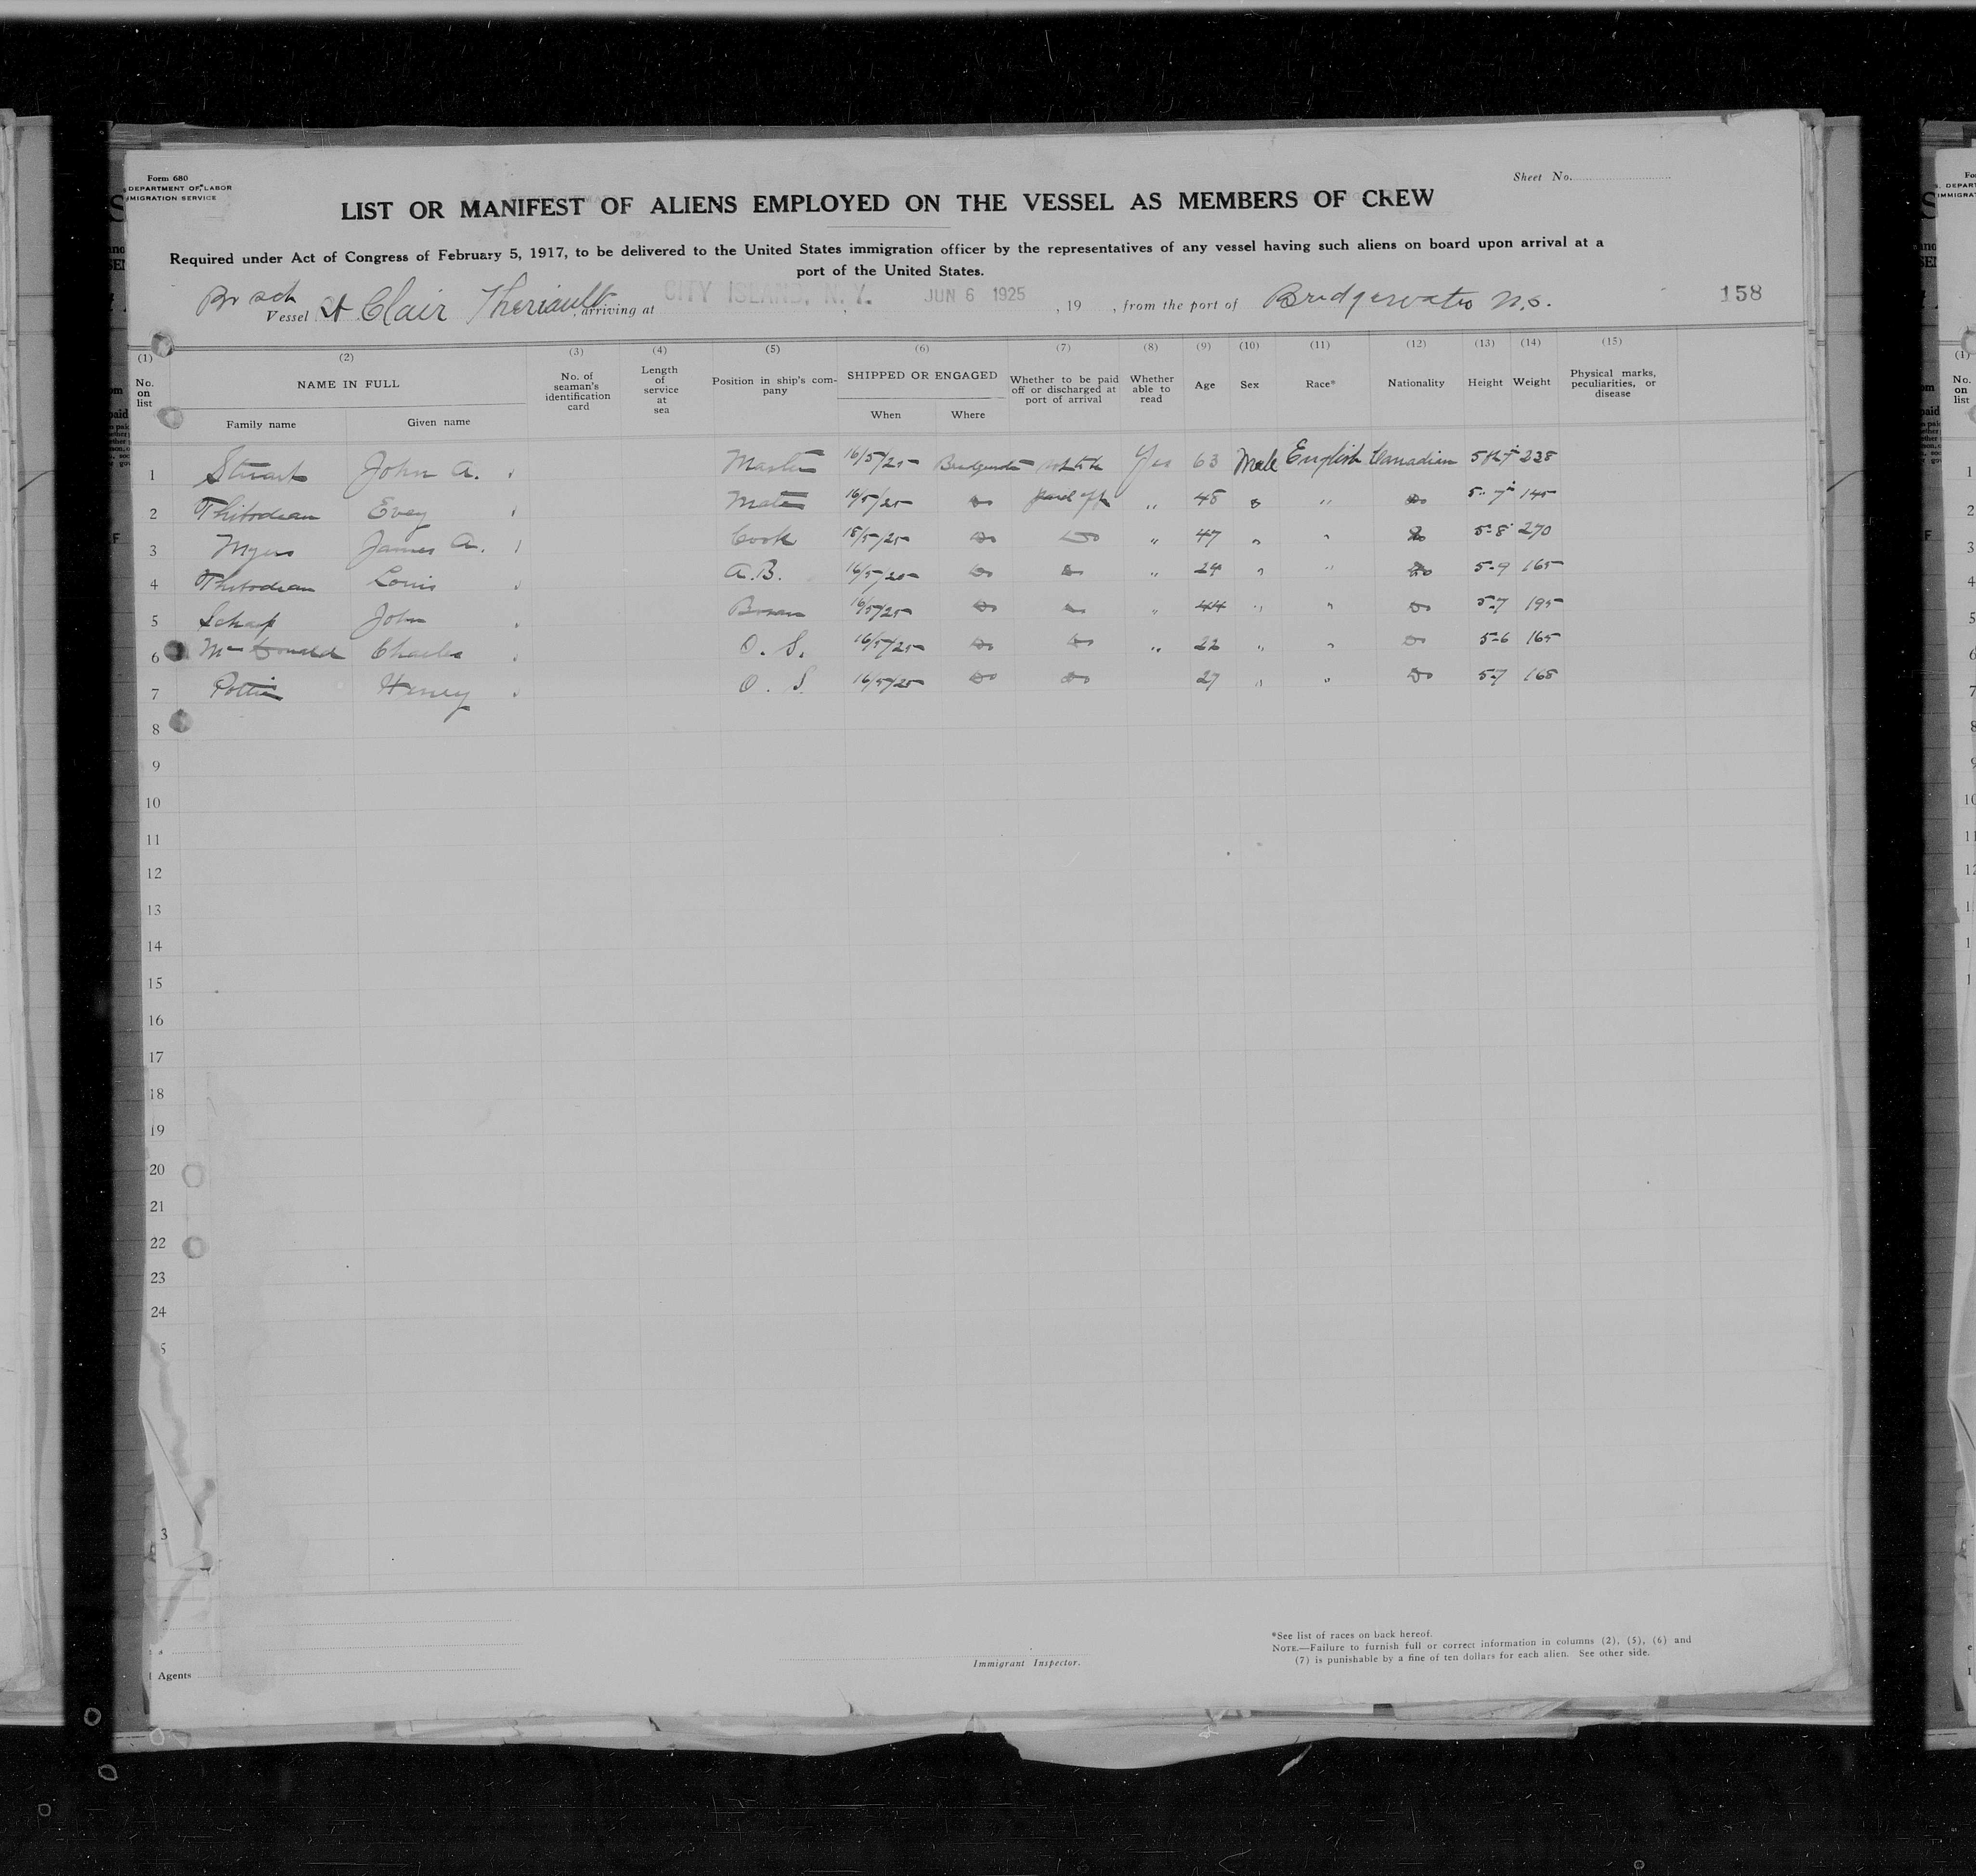 Form 680
DEPARTMENT OF LABOR
IMMIGRATION SERVICE
Sheet No.
LIST OR MANIFEST OF ALIENS EMPLOYED ON THE VESSEL AS MEMBERS OF CREW
Required under Act of Congress of February 5, 1917, to be delivered to the United States immigration officer by the representatives of any vessel having such aliens on board upon arrival at a
port of the United States.
Br sch Vessel St Clair Theriault, arriving at CITY ISLAND, N. Y. JUN 6 1925, 19 , from the port of Bridgewater N.S. 158
(1) (2) (3) (4) (5) (6) (7) (8) (9) (10) (11) (12) (13) (14) (15)
No. on list NAME IN FULL Family name Given name No. of seaman's identification card Length of service at sea Position in ship's company SHIPPED OR ENGAGED When Where Whether to be paid off or discharged at port of arrival Whether able to read Age Sex Race* Nationality Height Weight Physical marks, peculiarities, or disease
1 Stuart John A. Master 16/5/25 Bridgewater not to be Yes 63 Male English Canadian 238
2 Thibodeau Evey Mate 16/5/25 Do paid off " 48 " " Do 5" 7" 145
3 Myers James A. Cook 18/5/25 Do Do " 47 " " Do 5-8 270
4 Thibodeau Louis A.B. 16/5/25 Do Do " 24 " " Do 5-9 165
5 John Bosun 16/5/25 Do Do " 44 " " Do 5-7 195
6 McDonald Charles O. S. 16/5/25 Do Do " 22 " " Do 5-6 165
7 Pottie Henry O. S. 16/5/25 Do Do 27 " " Do 5-7 168
8
9
10
11
12
13
14
15
16
17
18
19
20
21
22
23
24
5
3
Agents
Immigrant Inspector.
*See list of races on back hereof.
NOTE.—Failure to furnish full or correct information in columns (2), (5), (6) and
(7) is punishable by a fine of ten dollars for each alien. See other side.